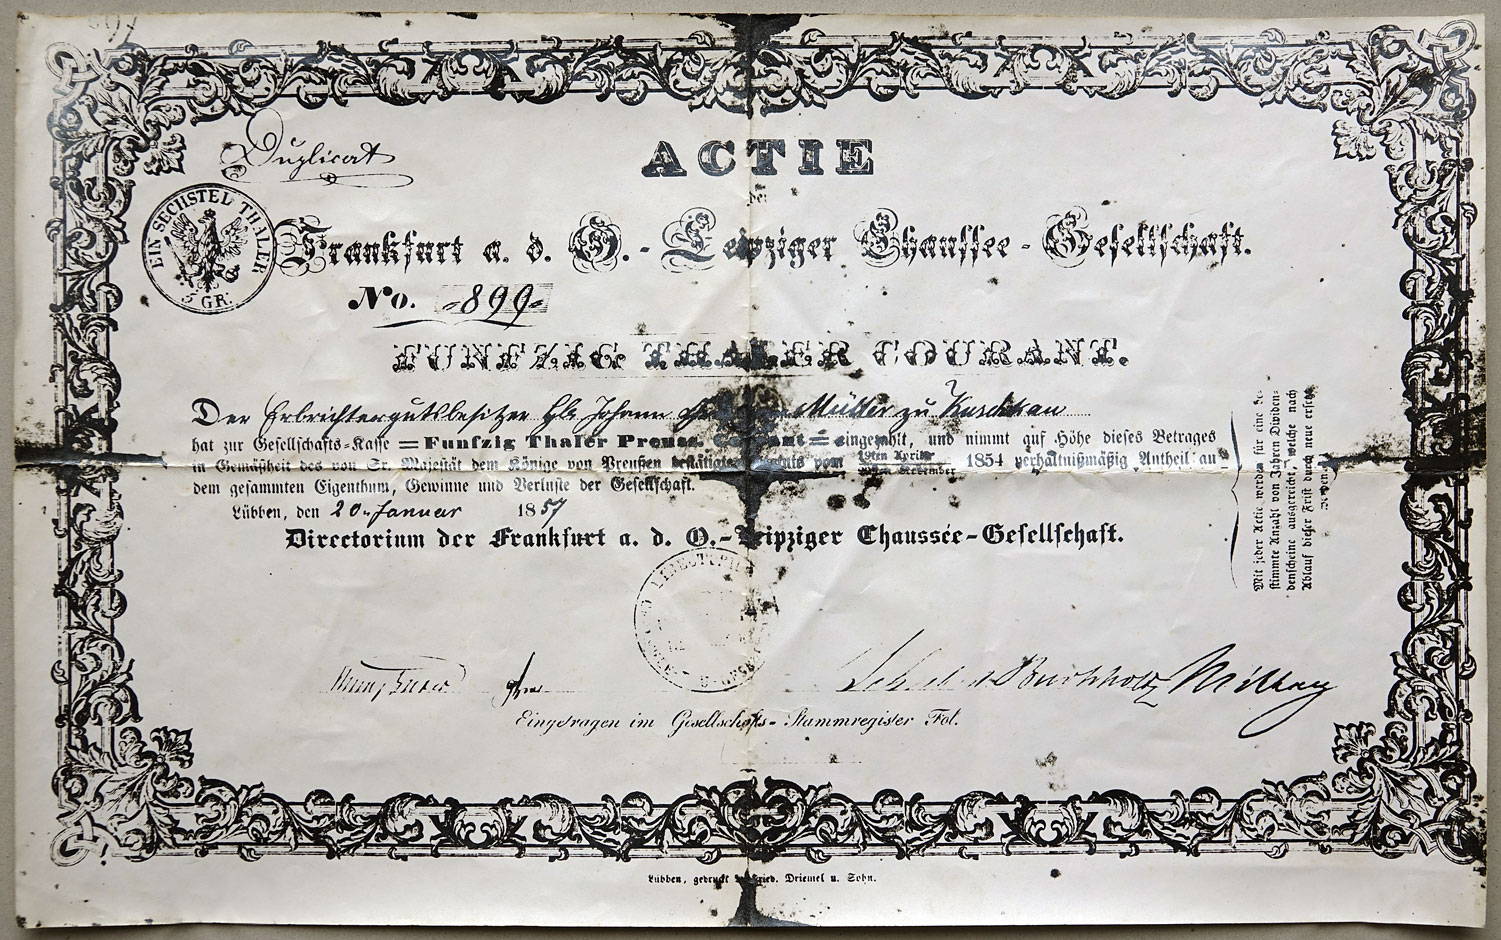 Duplicat
ACTIE
der
EIN SECHSTEL THALER
5 GR.
Frankfurt a. d. O. - Leipziger Chaussee - Gesellschaft.
No. 899
FUNFZIG THALER COURANT.
Der Erbrichtergutsbesitzer Johann Müller zu Kuschkau
hat zur Gesellschafts-Kasse = Funfzig Thaler Preuss. Courant = eingezahlt, und nimmt auf Höhe dieses Betrages
in Gemäßheit des von Sr. Majestät dem Könige von Preußen bestätigten vom 19ten April November 1854 verhältnißmäßig Antheil an
dem gesammten Eigenthum, Gewinne und Verluste der Gesellschaft.
Lübben, den 20. Januar 1857
Directorium der Frankfurt a. d. O.-Leipziger Chaussée-Gesellschaft.
Mit jeder Actie werden für eine be-
stimmte Anzahl von Jahren Dividen-
denscheine ausgereicht, welche nach
Ablauf dieser Frist durch neue ersetzt
werden.
Buchholtz
Eingetragen im Gesellschafts-Stammregister Fol.
Lübben, gedruckt Driemel u. Sohn.